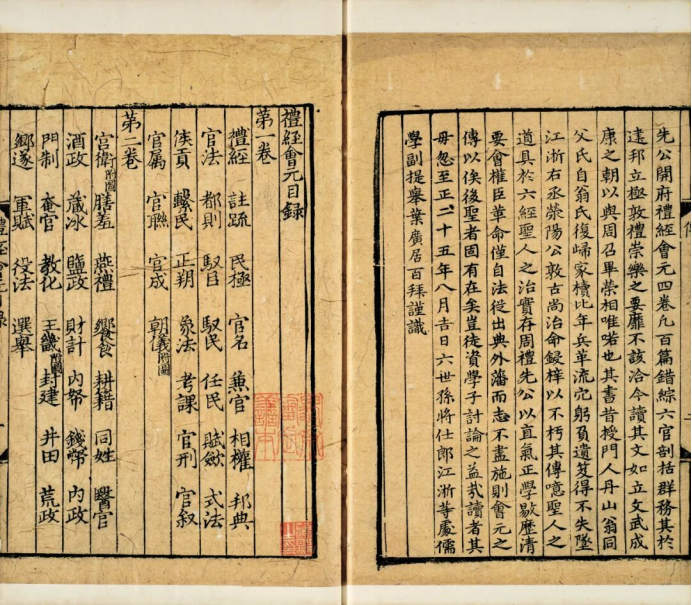 先公開府禮經會元四卷凡百篇錯綜六官剖括群務其於
遠邦立極敦禮崇樂之要靡不該洽今讀其文如立文武成
康之朝以與周召畢榮相唯喏也其書昔授門人丹山翁同
父氏自翁氏復歸家櫝比年兵革流宂躬負遺笈得不失墜
江浙右丞滎陽公敦古尚治命鋟梓以不朽其傳噫聖人之
道具於六經聖人之治實存周禮先公以直氣正學歇歷清
要會權臣革命僅自法從出典外藩而志不盡施則會元之
傳以俟後聖者固有在矣豈徒資學子討論之益哉讀者其
毋忽至正二十五年八月吉日六世孫將仕郎江浙等處儒
學副提舉葉廣居百拜謹識
禮經會元目錄
第一卷
禮經 註疏 民極 官名 兼官 相權 邦典
官法 都則 馭臣 馭民 任民 賦斂 式法
侯貢 繫民 正朔 象法 考課 官刑 官叙
官属 官聯 官成 朝儀附圖
第二卷
宮衛附圖 膳羞 燕禮 饗食 耕籍 同姓 醫官
酒政 藏冰 鹽政 財計 内帑 錢幣 内政
門制 奄官 教化 王畿附圖 封建 井田 荒政
鄉遂 軍賦 役法 選舉